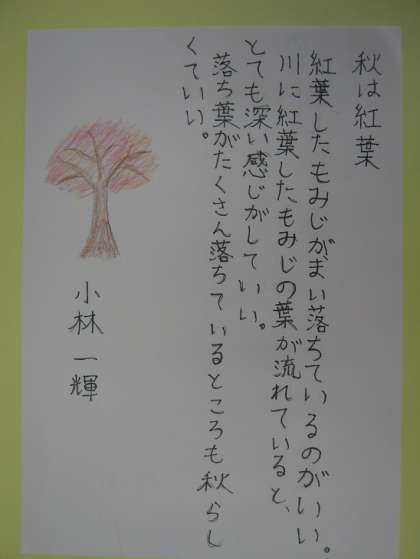 秋は紅葉
紅葉したもみじがまい落ちているのがいい。
川に紅葉したもみじの葉が流れていると、
とても深い感じがしていい。
落ち葉がたくさん落ちているところも秋らし
くていい。
小林一輝